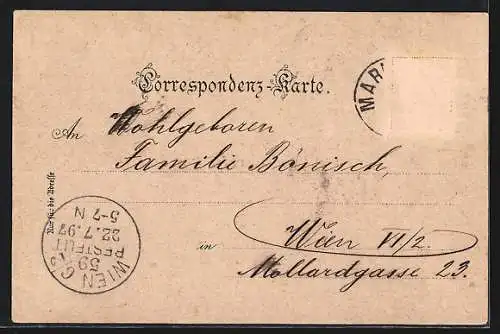 Correspondenz-Karte.
MAR
An Wohlgeboren
Familie Bönisch,
Nur für die Adresse
in Wien VI/2.
Mollardgasse 23.
WIEN 6/2
59
BESTELLT
22.7.97
5-7 N